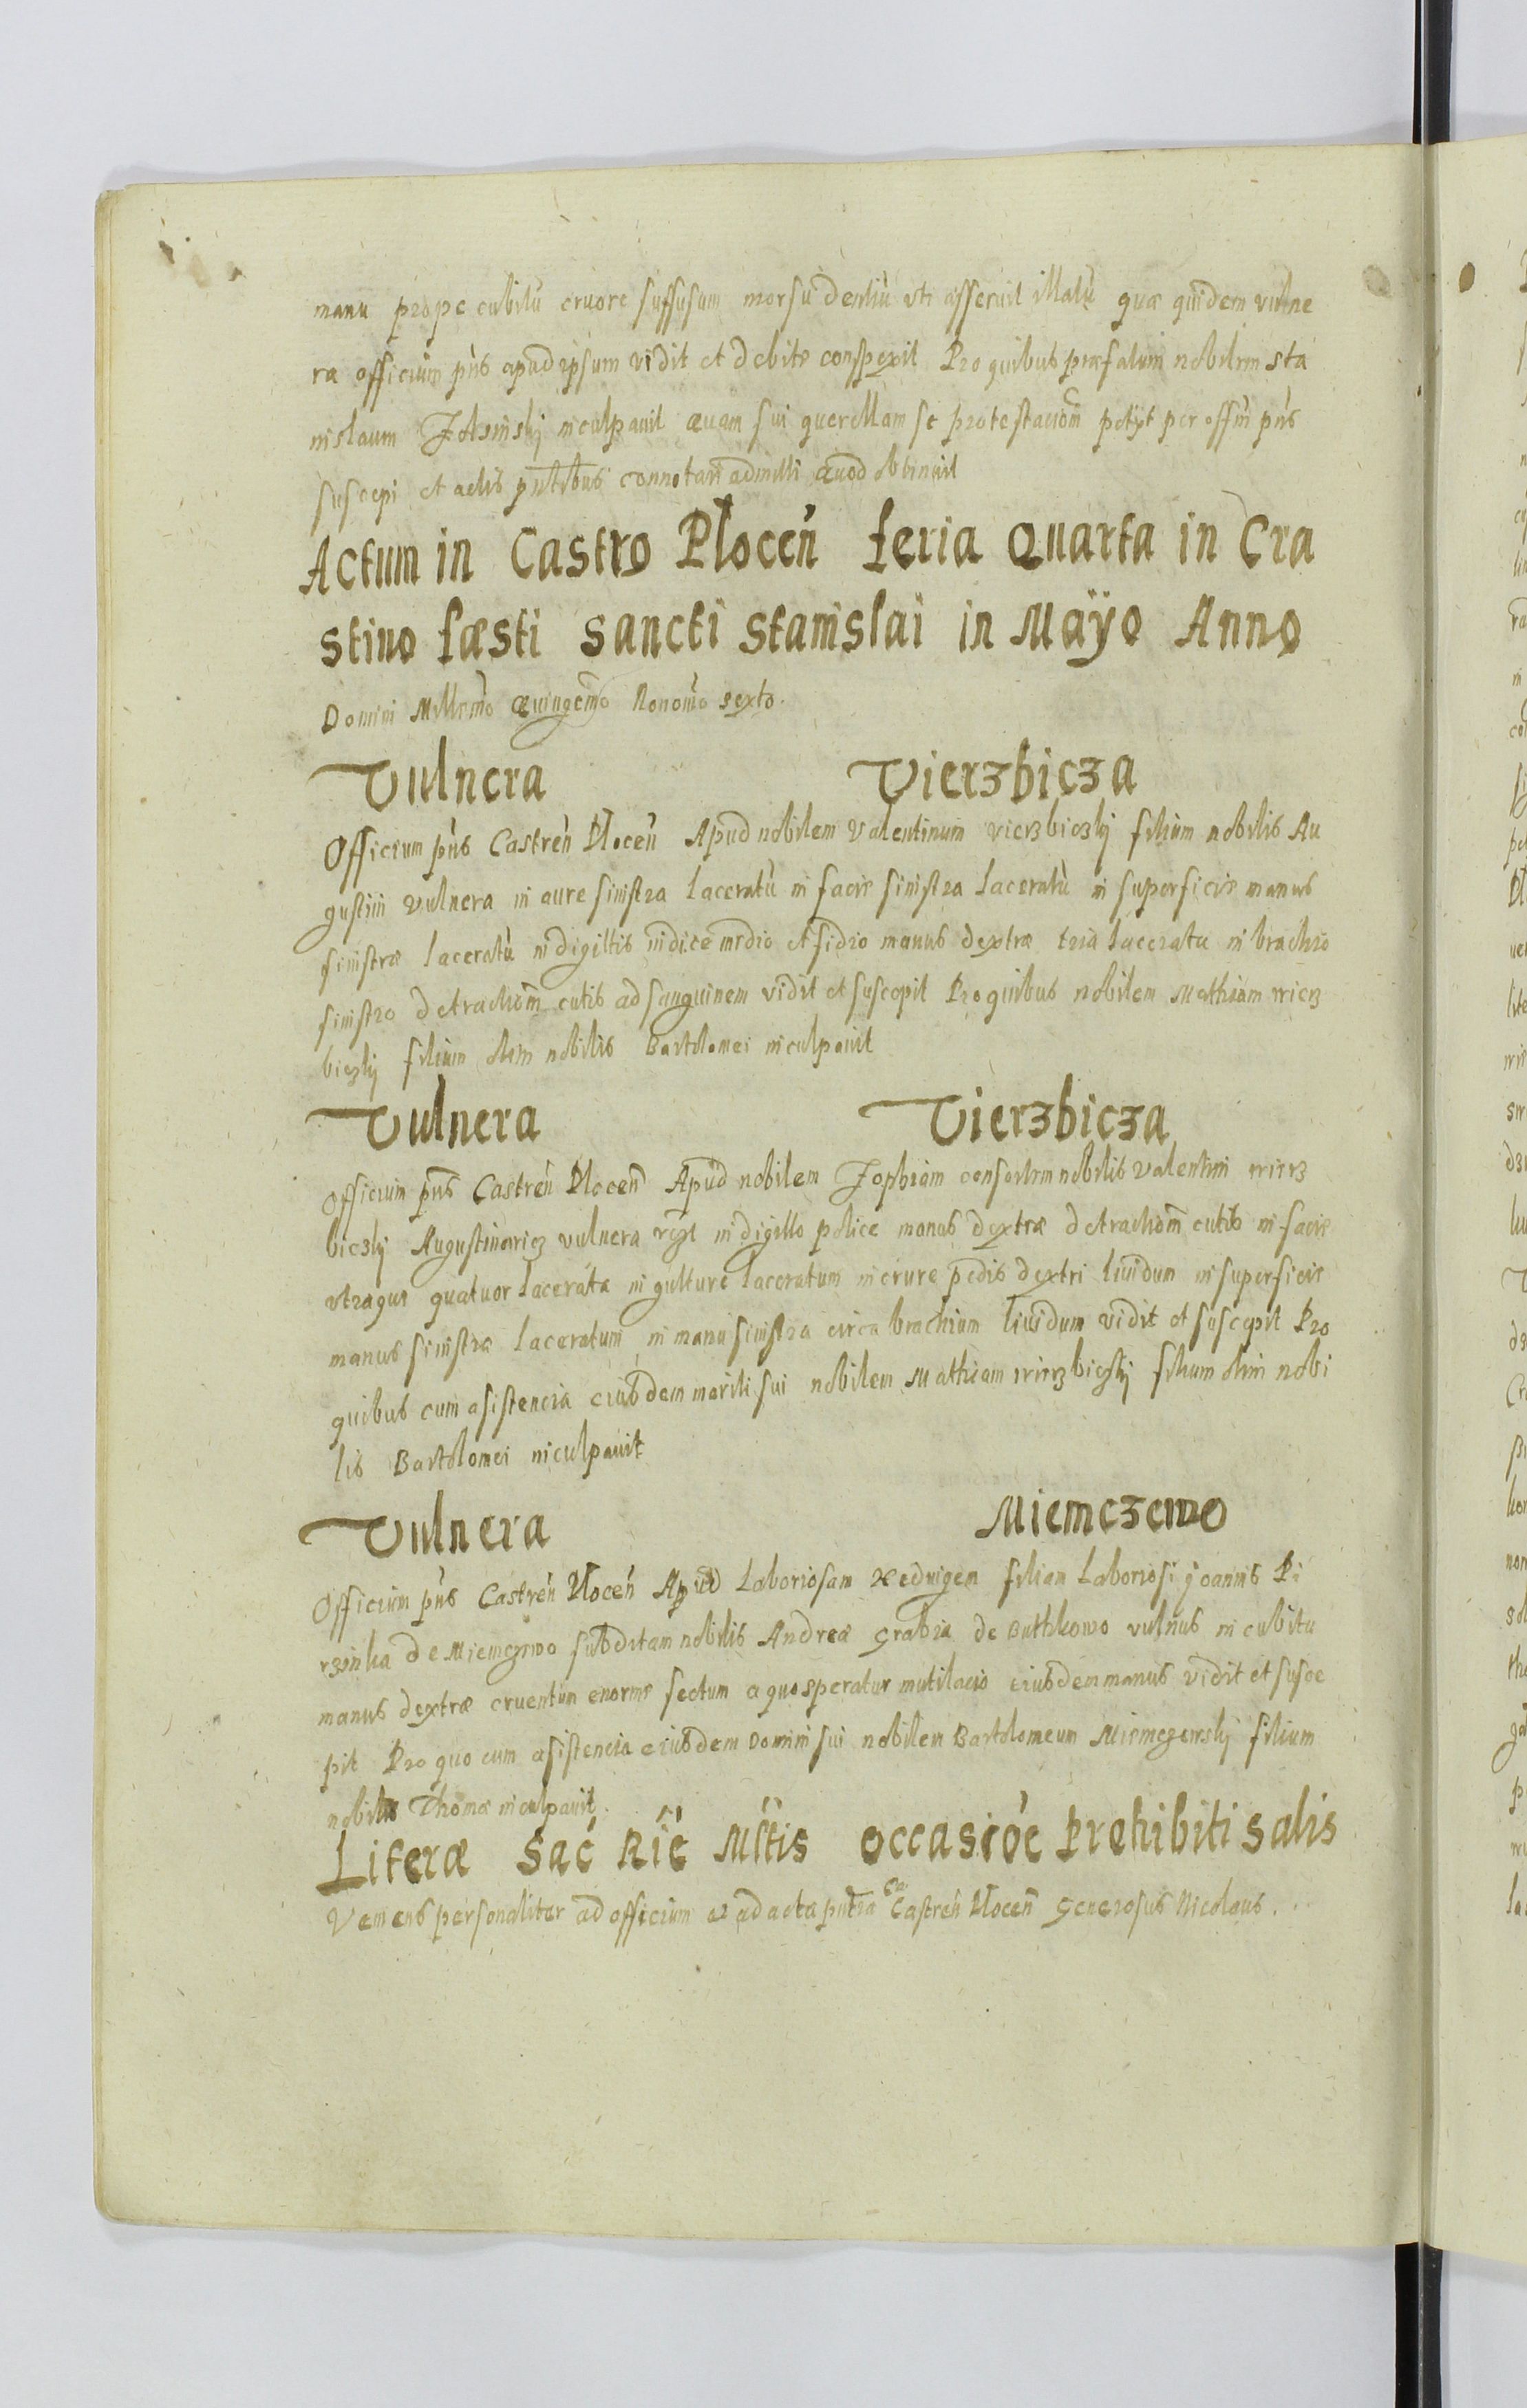 manu prope cubitũ cruore suffusum morsu dentiũ uti asseruit illatũ quæ quidem vulne
ra officium pñs apud ipsum vidit et debite conspexit Pro quibus præfatum nobilem Sta
nislaum inculpauit Quam sui querellam se protestacioñ petÿt per offiñ pñs
suscepi et actis pñtibus connotari admitti Quod obtinuit
Actum in Castro Ploceñ feria Quarta in Cra
stino fæsti Sancti Stanislai in Maÿo Anno
Domini Millemo Quingemo Nonomo sexto.
Vulnera Vierzbicza
Officium pñs Castreñ Ploceñ Apud nobilem Valentinum vierzbiczkij filium nobilis Au
gustini vulnera in aure sinistra laceratũ in facie sinistra laceratũ in superficie manus
sinistræ laceratũ in digittis indice medio et manus dextræ tria lacerata in brachio
sinistro detractioñ cutis ad sanguinem vidit et suscepit Pro quibus nobilem Mathiam wierz
biczkij filium olim nobilis Bartolomei inculpauit
Vulnera Vierzbicza
Officium pñs Castreñ Ploceñ Apud nobilem Zophiam consortem nobilis Valentini wierz
biczkij Augustinowicz vulnera in digitto police manus dextræ detractioñ cutis in facie
utraque quatuor lacerata in gutture laceratum in crure pedis dextri liuidum in superficie
manus sinistræ laceratum in manu sinistra circa brachium liuidum vidit et suscepit Pro
quibus cum asistencia eiusdem mariti sui nobilem Mathiam wierzbiczkij filium olim nobi
lis Bartolomei inculpauit
Vulnera Miemczewo
Officium pñs Castreñ Ploceñ Apud Laboriosam Hedvigem filiam Laboriosi Joannis Pi
rzinka de Miemczewo subditam nobilis Andreæ Grabia de Buthkowo vulnus in cubitu
manus dextræ cruentum enorme sectum a quo speratur mutilacio eiusdem manus vidit et susce
pit Pro quo cum asistencia eiusdem Domini sui nobilem Bartolomeum Miemczewskij filium
nobilis Thomæ inculpauit.
Literæ Sac̃ Rie̊ Mltis occasioe̊ Prohibiti salis
Veniens personaliter ad officium et ad acta pñtia Castreñ Ploceñ Generosus Nicolaus.